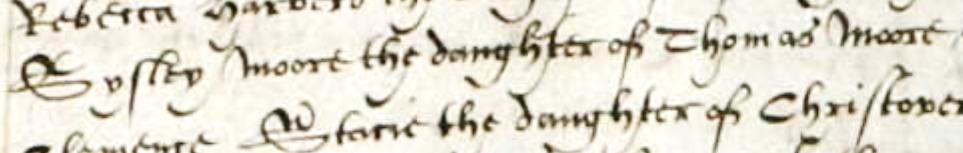 Rebecca
Sysley Moore the daughter of Thomas Moore
Stacie the daughter of Christover